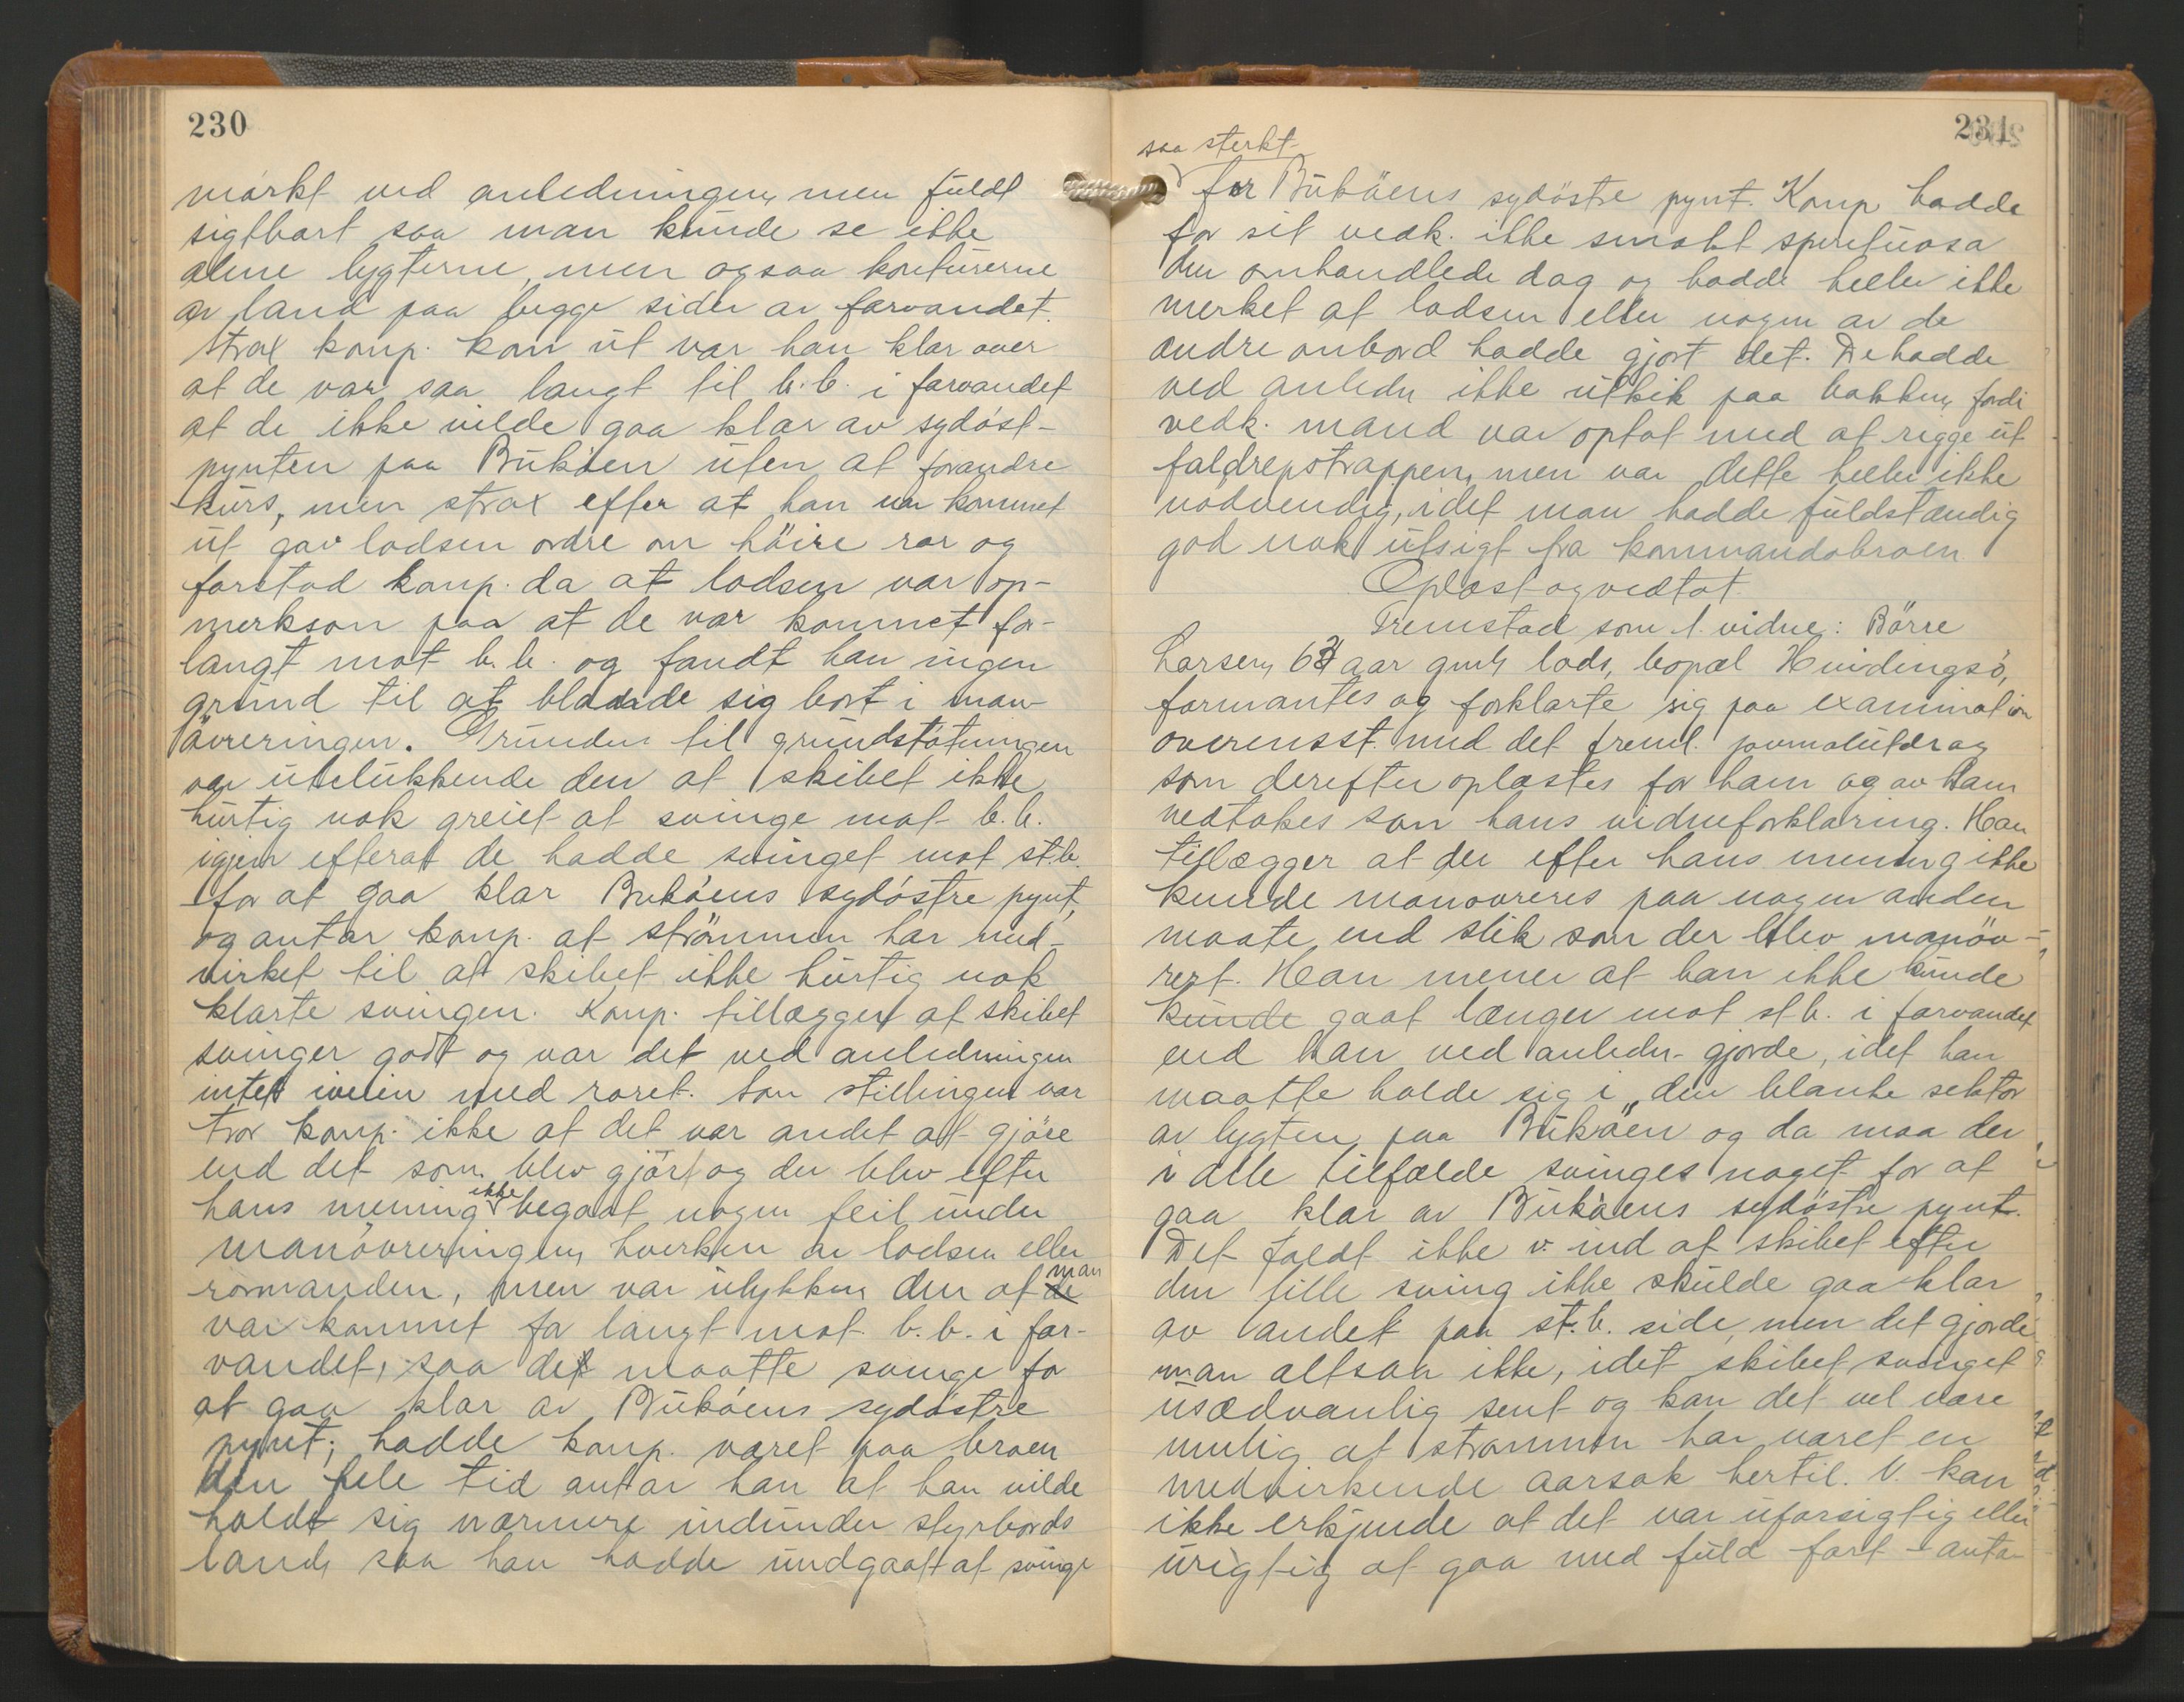 230
mørkt ved anledningen, men fuldt
sigtbart saa man kunde se ikke
alene lygterne, men ogsaa konturerne
av land paa begge sider av farvandet.
Strax komp. kom ut var han klar over
at de var saa langt til b.b. i farvandet
at de ikke vilde gaa klar av sydöst-
pynten paa Bukøen uten at forandre
kurs, men strax efter at han var kommet
ut gav lodsen ordre om höire ror og
forstod komp. da at lodsen var op-
merksom paa at de var kommet for-
langt mot b.b. og fandt han ingen
grund til at blande sig bort i man-
övreringen. Grunden til grundstötningen
var utelukkende den at skibet ikke
hurtig nok greiet at svinge mot b.b.
igjen efterat de hadde svinget mot st.b.
for at gaa klar Buköens sydöstre pynt,
og antar komp. at strömmen har med-
virket til at skibet ikke hurtig nok
klarte svingen. Komp. tillægger at skibet
svinger godt og var det ved anledningen
intet iveien med roret. Som stillingen var
tror komp. ikke at det var andet at gjöre
end det som blev gjört og der blev efter
hans mening ikke begaat nogen feil under
manövreringen, hverken av lodsen eller
rormanden, men var ulykken den at de man
var kommet for langt mot b.b. i far-
vandet, saa det maatte svinge for
at gaa klar av Buköens sydöstre
pynt; hadde komp. været paa broen
den hele tid antar han at han vilde
holdt sig nærmere indunder styrbords
land, saa han hadde undgaat at svinge
231
saa sterkt
for Buköens sydöstre pynt. Komp hadde
for sit vedk. ikke smakt spirituosa
den omhandlede dag og hadde heller ikke
merket at lodsen eller nogen av de
andre ombord hadde gjort det. De hadde
ved anledn ikke utkik paa bakken, fordi
vedk. mand var optat med at rigge ut
faldrepstrappen, men var dette heller ikke
nödvendig, idet man hadde fuldstændig
god nok utsigt fra kommandobroen
Oplæst og vedtat.
Fremstod som 1. vidne: Börre
Larsen, 63 aar gml, lods, bopæl Hvidingsö,
formantes og forklarte sig paa examination
overensst. med det freml. journalutdrag
som derefter oplæstes for ham og av ham
vedtokes som hans vidneforklaring. Han
tillægger at der efter hans mening ikke
kunde manövreres paa nogen anden
maate, end slik som der blev manöv-
rert. Han mener at han ikke kunde
kunde gaat længer mot st.b. i farvandet
end han ved anledn. gjorde, idet han
maatte holde sig i den blanke sektor
av lygten paa Buköen og da maa der
i alle tilfælde svinges noget for at
gaa klar av Buköens sydöstre pynt.
Det faldt ikke v. ind at skibet efter
den lille sving ikke skulde gaa klar
av landet paa st.b. side, men det gjorde
man altsaa ikke, idet skibet svinget
usædvanlig sent og kan det vel være
mulig at strömmen har været en
medvirkende aarsak hertil. V. kan
ikke erkjende at det var uforsigtig eller
urigtig at gaa med fuld fart - anta-